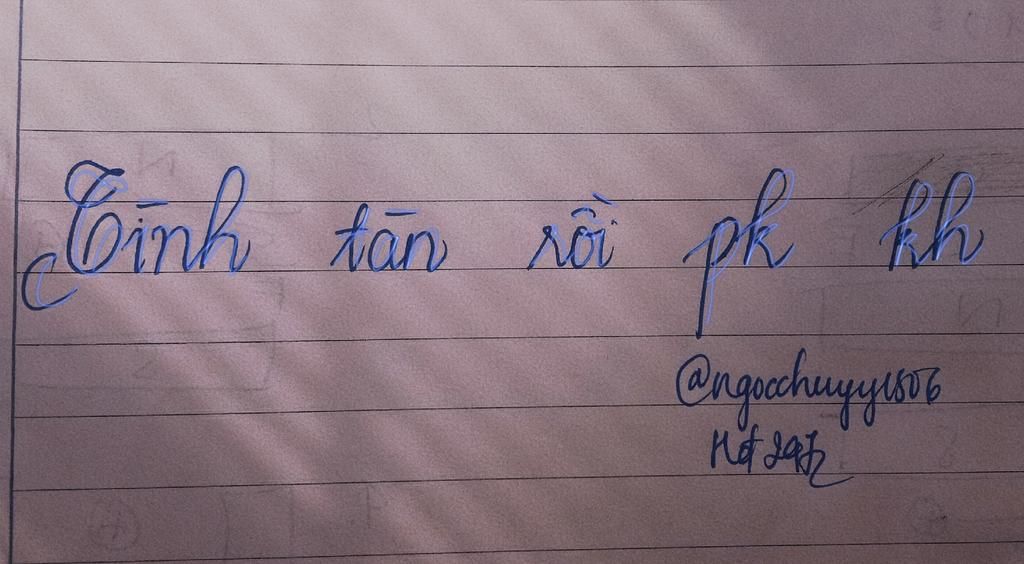 Tình tàn rồi pk kh
@ngocchuyy1506